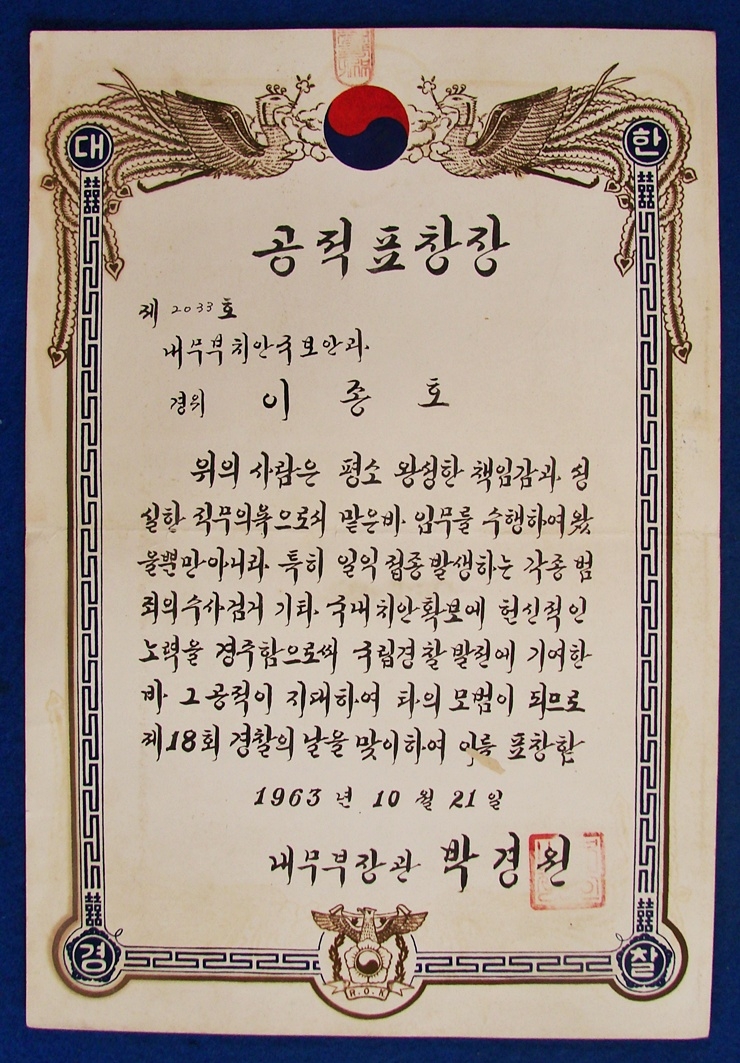 대 한
공적표창장
제 2033 호
내무부치안국보안과
경위 이 종 호
위의 사람은 평소 왕성한 책임감과 성
실한 직무의욕으로서 맡은바 임무를 수행하여왔
을뿐만아니라 특히 일익 접종 발생하는 각종 범
죄의수사검거 기타 국내치안확보에 헌신적인
노력을 경주함으로써 국립경찰발전에 기여한
바 그공적이 지대하여 타의 모범이 되므로
제18회 경찰의 날을 맞이하여 이를 표창함
1963 년 10 월 21 일
내무부장관 박경원
R.O.K
경 찰